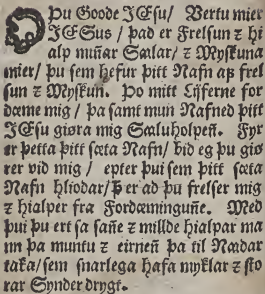 O Þu Goode JEsu/ Vertu mier
JESus/ þad er Frelsun ⁊ hi
alp muñar Sœlar/ ⁊ Myskuna
mier/ þu sem hefur þitt Nafn aþ frel
sun ⁊ Myskun. Þo mitt Lijferne for
dœme mig/ þa samt mun Nafned þitt
JEsu giøra mig Sœluholpeñ. Fyr
er þetta þitt sœta Nafn/ bid eg þu giø
rer vid mig/ epter þui sem þitt sœta
Nafn hliodar/ þ er ad þu frelser mig
⁊ hialper fra Fordœminguñe. Med
þui þu ert sa sañe ⁊ millde hialpar ma
nn þa muntu ⁊ eirneñ þa til Nædar
taka/ sem snarlega hafa myklar ⁊ sto
rar Synder drygt.